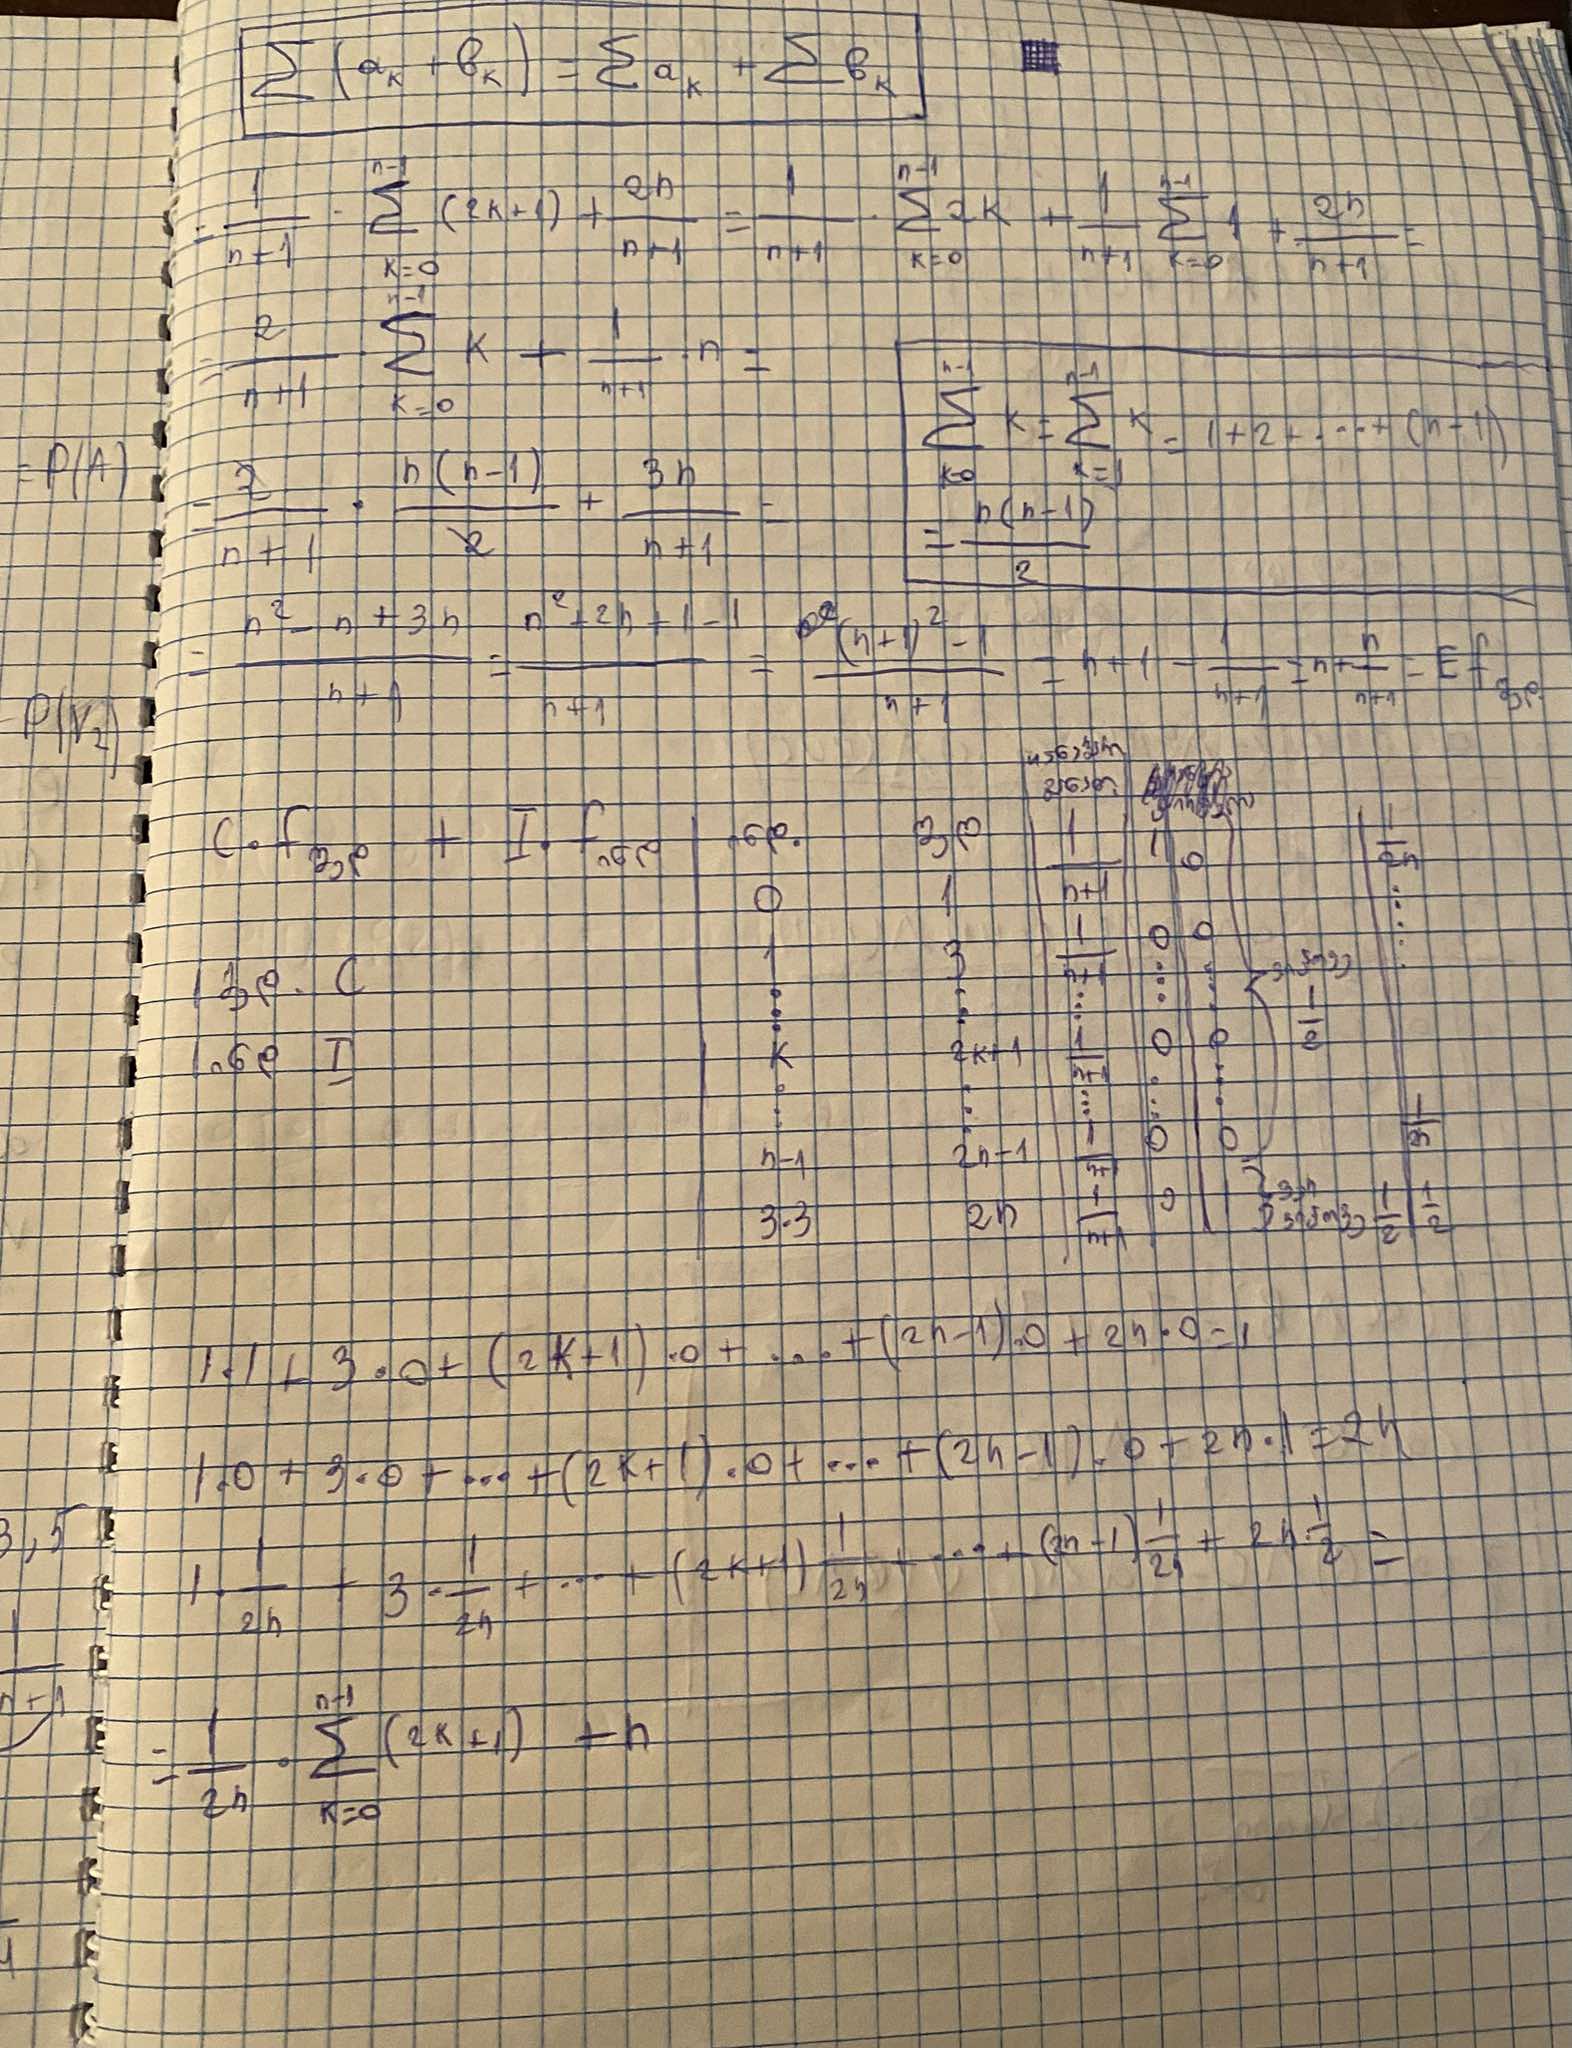 ∑(aₖ + bₖ) = ∑aₖ + ∑bₖ
= 1/(n+1) · ∑_{k=0}^{n-1} (2k+1) + 2n/(n+1) = 1/(n+1) · ∑_{k=0}^{n-1} 2k + 1/(n+1) ∑_{k=0}^{n-1} 1 + 2n/(n+1) =
= 2/(n+1) · ∑_{k=0}^{n-1} k + 1/(n+1) · n =
∑_{k=0}^{n-1} k = ∑_{k=1}^{n-1} k = 1+2+....+(n-1)
= n(n-1)/2
= P(A)
= 2/(n+1) · n(n-1)/2 + 3n/(n+1) =
= (n²-n+3n)/(n+1) = (n²+2n+1-1)/(n+1) = ((n+1)²-1)/(n+1) = n+1 - 1/(n+1) = n + n/(n+1) = E f შედ.
= P(V₂)
C·f შედ + I·f
0 1 1/(n+1) 1 0 1/2n
1 3 1/(n+1) 0 0
C
k 2k+1 1/(n+1) 0 0 1/2
I
n-1 2n-1 1/(n+1) 0 0 1/2n
2n 1/(n+1) 0 1/2 1/2
1·1 + 3·0 + (2k+1)·0 + .... + (2n-1)·0 + 2n·0 = 1
1·0 + 3·0 + ... + (2k+1)·0 + ... + (2n-1)·0 + 2n·1 = 2n
3,5
1·1/2n + 3·1/2n + ... + (2k+1) 1/2n + ... + (2n-1) 1/2n + 2n·1/2 =
1/(n+1)
= 1/2n · ∑_{k=0}^{n-1} (2k+1) + n